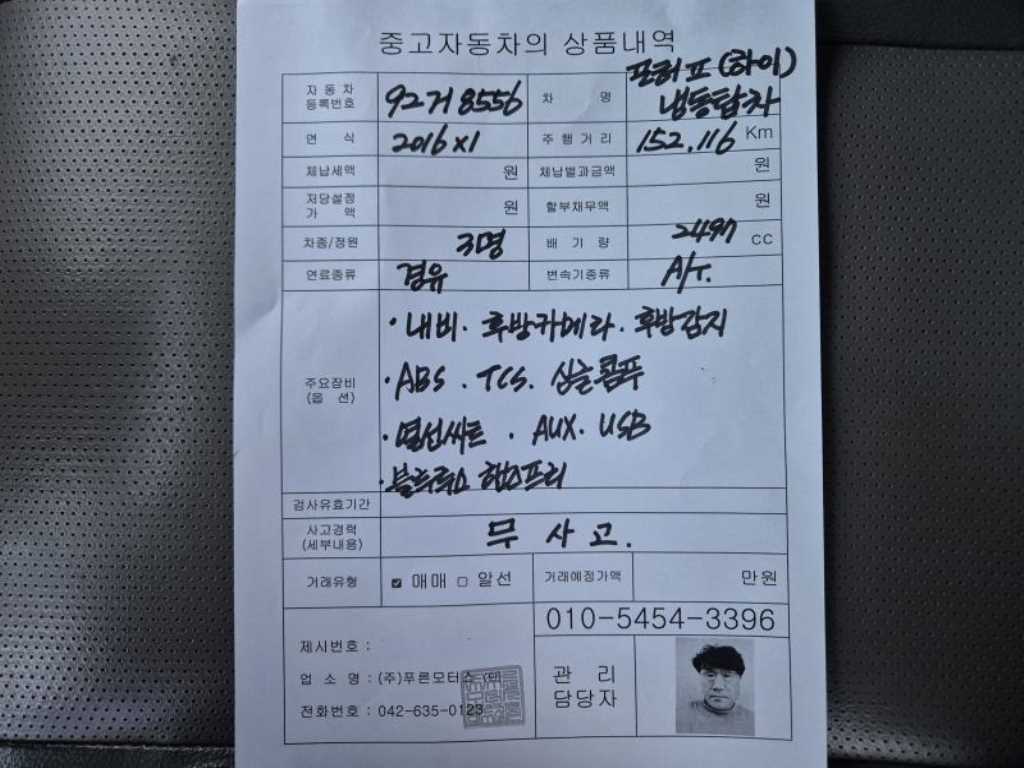 중고자동차의 상품내역
자동차 등록번호 92거8556 차 명 포터Ⅱ(하이) 냉동탑차
연 식 2016 x1 주행거리 152,116 Km
체납세액 원 체납벌과금액 원
저당설정 가 액 원 할부채무액 원
차종/정원 3명 배 기 량 2497 CC
연료종류 경유 변속기종류 A/T.
주요장비 (옵 션)
· 내비 · 후방카메라 · 후방감지
· ABS . TCS. 싱글콤푸
· 열선씨트 . AUX. USB
· 블루투스 핸즈프리
검사유효기간
사고경력 (세부내용) 무 사 고.
거래유형 ☑ 매매 □ 알선 거래예정가액 만원
010-5454-3396
제시번호 :
업 소 명 : (주)푸른모터스
전화번호 : 042-635-0123
관 리
담당자